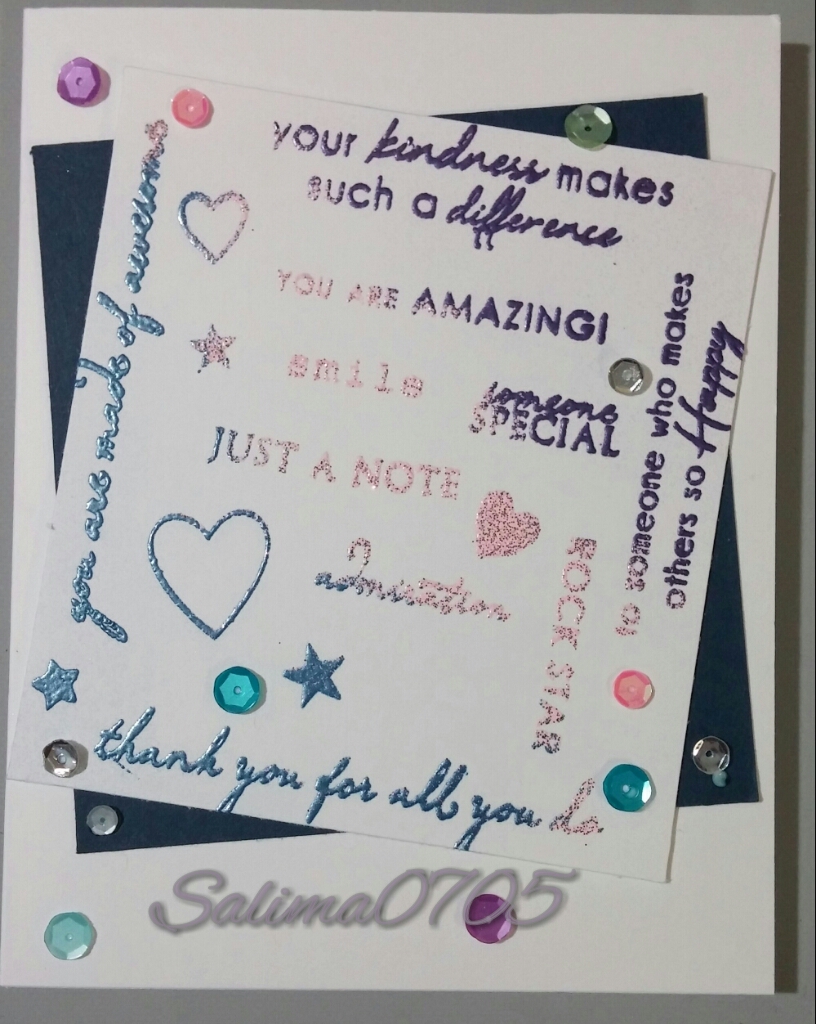 your kindness makes
such a difference
you are made of awesome
YOU ARE AMAZING!
smile
someone
SPECIAL
to someone who makes
others so Happy
JUST A NOTE
admiration
ROCK STAR
thank you for all you do
Salima0705